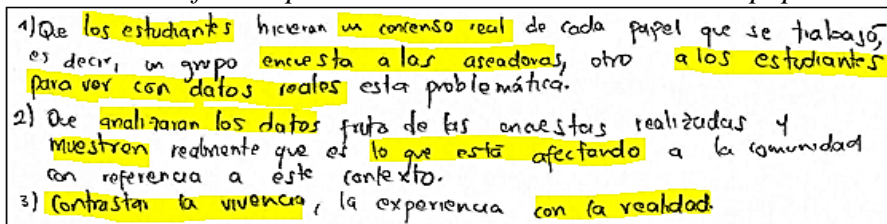 1) Que los estudiantes hicieran un concenso real de cada papel que se trabajó,
es decir, un grupo encuesta a las aseadoras, otro a los estudiantes
para ver con datos reales esta problemática.
2) Que analizaran los datos fruto de las encuestas realizadas y
muestren realmente que es lo que está afectando a la comunidad
con referencia a este contexto.
3) Contrastar la vivencia, la experiencia con la realidad.